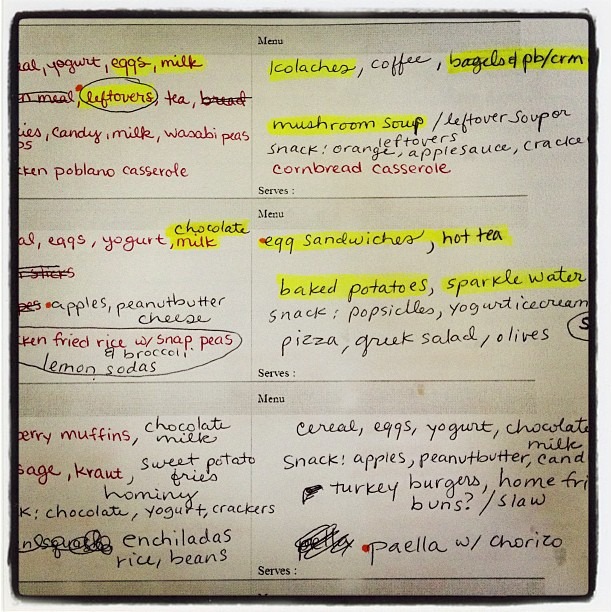 Menu
yogurt, eggs, milk
Kolaches, coffee, bagels & pb/crm
meal, leftovers, tea, bread
mushroom soup / leftover soup or
leftovers
candy, milk, wasabi peas
snack: orange, applesauce, cracke
poblano casserole
cornbread casserole
Serves :
Menu
chocolate
eggs, yogurt, milk
egg sandwiches, hot tea
baked potatoes, sparkle water
apples, peanutbutter
cheese
snack: popsicles, yogurt icecream
fried rice w/ snap peas
& broccoli
lemon sodas
pizza, greek salad, olives
Serves :
Menu
muffins, chocolate
milk
cereal, eggs, yogurt, chocolate
milk
kraut, sweet potato
fries
hominy
snack: apples, peanutbutter, cand
turkey burgers, home fri
buns? / slaw
chocolate, yogurt, crackers
enchiladas
rice, beans
paella
paella w/ chorizo
Serves :